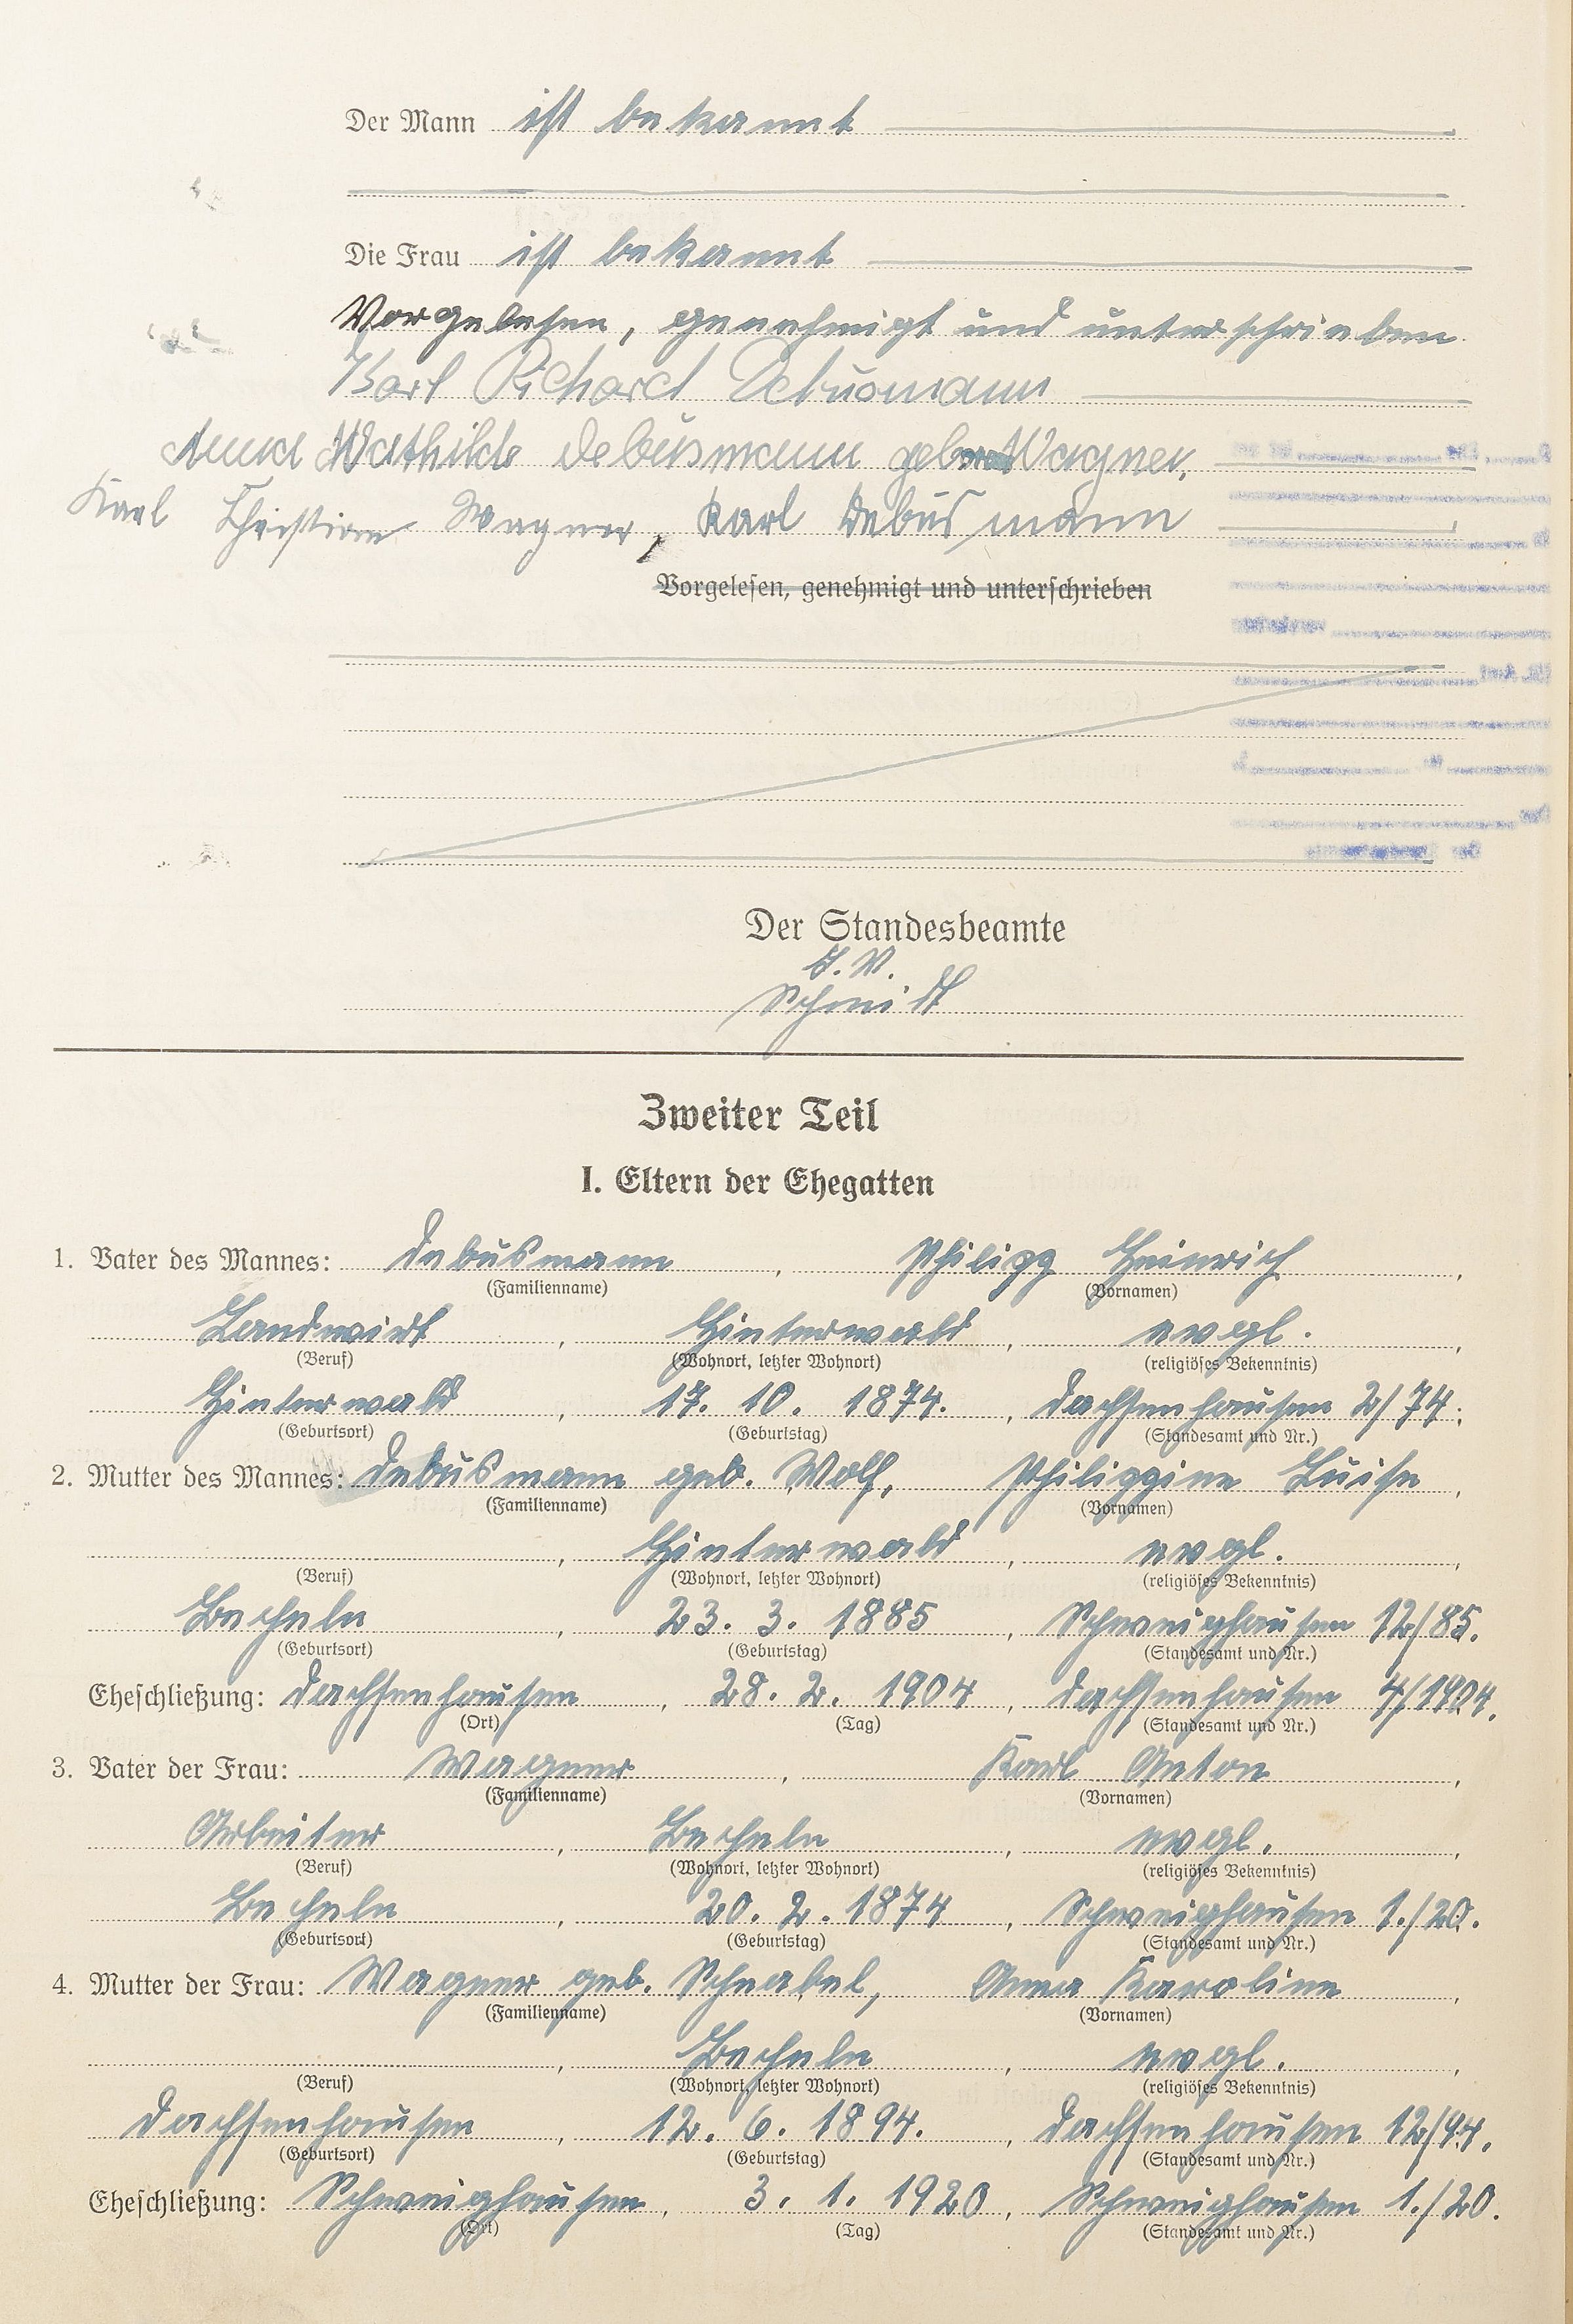 Der Mann ist bekannt
Die Frau ist bekannt
Vorgelesen, genehmigt und unterschrieben
Karl Richard Debusmann
Anna Mathilde Debusmann geborene Wagner,
Karl Christian Wagner, Karl Debusmann
Vorgelesen, genehmigt und unterschrieben
Der Standesbeamte
J. V.
Schmidt
Zweiter Teil
I. Eltern der Ehegatten
1. Vater des Mannes: Debusmann, Philipp Heinrich,
(Familienname) (Vornamen)
Landwirt, Hinterwald, evgl.,
(Beruf) (Wohnort, letzter Wohnort) (religiöses Bekenntnis)
Hinterwald, 17. 10. 1874., Dachsenhausen 2/74;
(Geburtsort) (Geburtstag) (Standesamt und Nr.)
2. Mutter des Mannes: Debusmann geb. Wolf, Philippine Luise,
(Familienname) (Vornamen)
, Hinterwald, evgl.,
(Beruf) (Wohnort, letzter Wohnort) (religiöses Bekenntnis)
Becheln, 23. 3. 1885, Schweighausen 12/85.
(Geburtsort) (Geburtstag) (Standesamt und Nr.)
Eheschließung: Dachsenhausen, 28. 2. 1904, Dachsenhausen 4/1904.
(Ort) (Tag) (Standesamt und Nr.)
3. Vater der Frau: Wagner, Karl Anton,
(Familienname) (Vornamen)
Arbeiter, Becheln, evgl.,
(Beruf) (Wohnort, letzter Wohnort) (religiöses Bekenntnis)
Becheln, 20. 2. 1874, Schweighausen 1./20.
(Geburtsort) (Geburtstag) (Standesamt und Nr.)
4. Mutter der Frau: Wagner geb. Schnabel, Anna Karoline,
(Familienname) (Vornamen)
, Becheln, evgl.,
(Beruf) (Wohnort, letzter Wohnort) (religiöses Bekenntnis)
Dachsenhausen, 12. 6. 1894., Dachsenhausen 12/94.
(Geburtsort) (Geburtstag) (Standesamt und Nr.)
Eheschließung: Schweighausen, 3. 1. 1920, Schweighausen 1./20.
(Ort) (Tag) (Standesamt und Nr.)